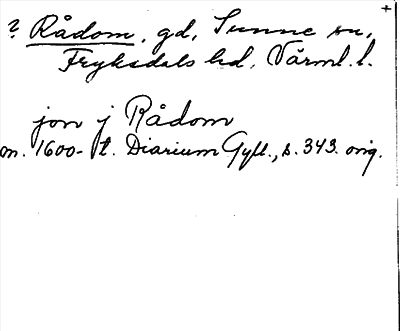 +
? Rådom, gd, Sunne sn,
Fryksdals hd, Värml. l.
jon j Rådom
m. 1600-t. Diarium Gyll., s. 343. orig.